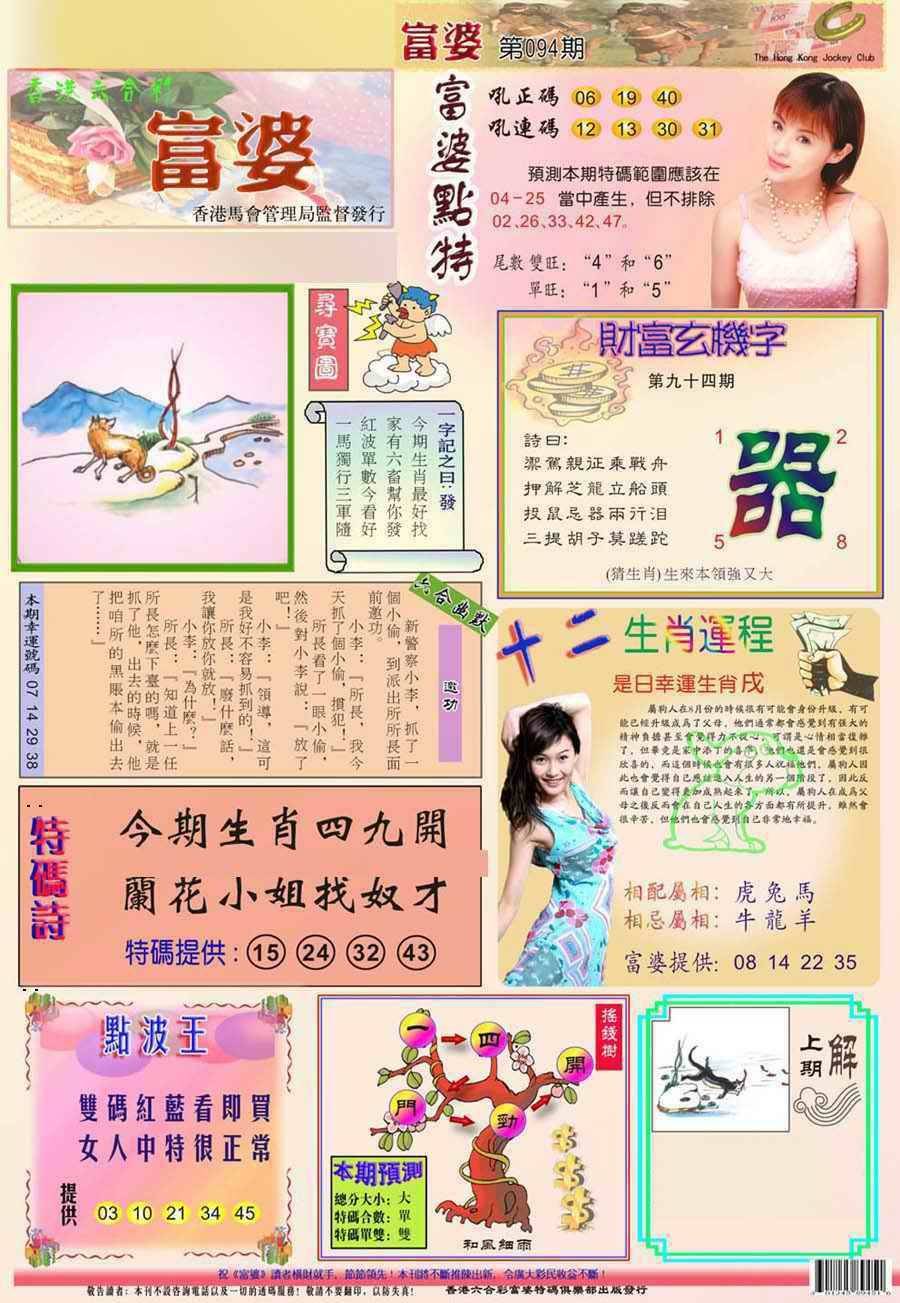 富婆 第094期
The Hong Kong Jockey Club
香港六合彩
富婆
香港馬會管理局監督發行
富婆點特
吼正碼 06 19 40
吼連碼 12 13 30 31
預測本期特碼範圍應該在
04-25 當中產生，但不排除
02、26、33、42、47。
尾數雙旺：“4”和“6”
單旺：“1”和“5”
尋寶圖
一字記之曰：發
今期生肖最好找
家有六畜幫你發
紅波單數今看好
一馬獨行三軍隨
財富玄機字
第九十四期
詩曰：
禦駕親征乘戰舟
押解芝龍立船頭
投鼠忌器兩行泪
三提胡子莫蹉跎
1 2
器
5 8
(猜生肖)生來本領強又大
六合幽默
邀功
新警察小李，抓了一
個小偷，到派出所所長面
前邀功。
小李：『所長，我今
天抓了個小偷，慣犯！』
所長看了一眼小偷，
然後對小李說：『放了
吧！』
小李：『領導，這可
是我好不容易抓到的！』
所長：『廢什麼話，
我讓你放你就放！』
小李：『為什麼？』
所長：『知道上一任
所長怎麼下臺的嗎，就是
抓了他，出去的時候，他
把咱所的黑賬本偷出去
了……』
本期幸運號碼 07 14 29 38
十二生肖運程
是日幸運生肖戌
屬狗人在8月份的時候很有可能會身份升級，有可
能已經升級成爲了父母，他們通常都會感覺到有強大的
精神負擔甚至會覺得力不從心，可謂是心情相當復雜
了，但畢竟是家中添丁的喜事，他們也還是會感覺到很
欣喜的，而這個時候也會有很多人祝福他們，屬狗人因
此也會覺得自己應該進入人生的另一個階段了，因此反
而讓自己變得更加成熟起來了，所以，屬狗人在成爲父
母之後反而會在自己人生的各方面都有所提升，雖然會
很辛苦，但他們也會感覺到自己非常地幸福。
相配屬相：虎兔馬
相忌屬相：牛龍羊
富婆提供：08 14 22 35
特碼詩
今期生肖四九開
蘭花小姐找奴才
特碼提供：15 24 32 43
點波王
雙碼紅藍看即買
女人中特很正常
提供 03 10 21 34 45
搖錢樹
一 四
開
門 勁
本期預測
總分大小：大
特碼合數：單
特碼單雙：雙
和風細雨
上期解
祝《富婆》讀者橫財就手，節節領先！本刊將不斷推陳出新，令廣大彩民收益不斷！
敬告讀者：本刊不設咨詢電話以及一切的透碼服務！敬請不要翻印，以防失真！ 香港六合彩富婆特碼俱樂部出版發行